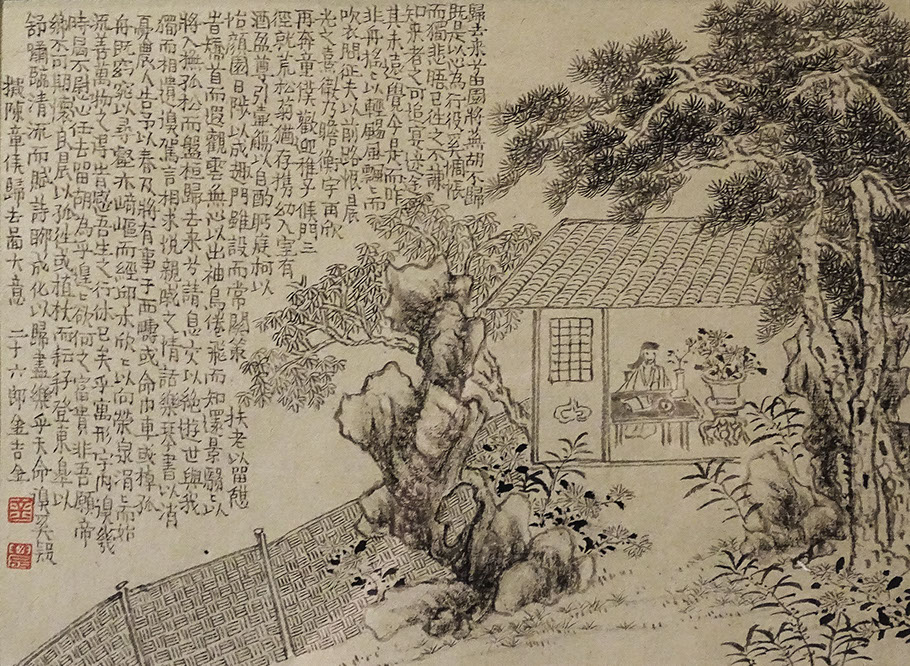 歸去來兮田園將蕪胡不歸
既是以心為行役奚惆悵
而獨悲悟已往之不諫
知來者之可追寔迷途
其未遠覺今是而昨
非舟搖〻以輕颺風飄〻而
吹衣問征夫以前路恨晨
光之熹微乃瞻衡宇載欣
載奔童僕歡迎稚子候門三
徑就荒松菊猶存攜幼入室有
酒盈尊引壺觴以自酌眄庭柯以
怡顏園日涉以成趣門雖設而常關策扶老以留憩
時矯首而遐觀雲無心以出岫鳥倦飛而知還景翳〻以
將入撫孤松而盤桓歸去來兮請息交以絕遊世與我
獨而相遺復駕言相求悅親戚之情話樂琴書以消
憂農人告予以春及將有事于西疇或命巾車或棹孤
舟既窈窕以尋壑亦崎嶇而經邱木欣〻以向榮泉涓〻而始
流善萬物之得時感吾生之行休已矣乎寓形宇內復幾
時曷不委心任去留胡為乎遑〻欲何之富貴非吾願帝
鄉不可期懷良晨以孤往或植杖而耘耔登東皋以
舒嘯臨清流而賦詩聊乘化以歸盡樂乎天命復奚疑
擬陳章侯歸去圖大意 二十六郎金吉金